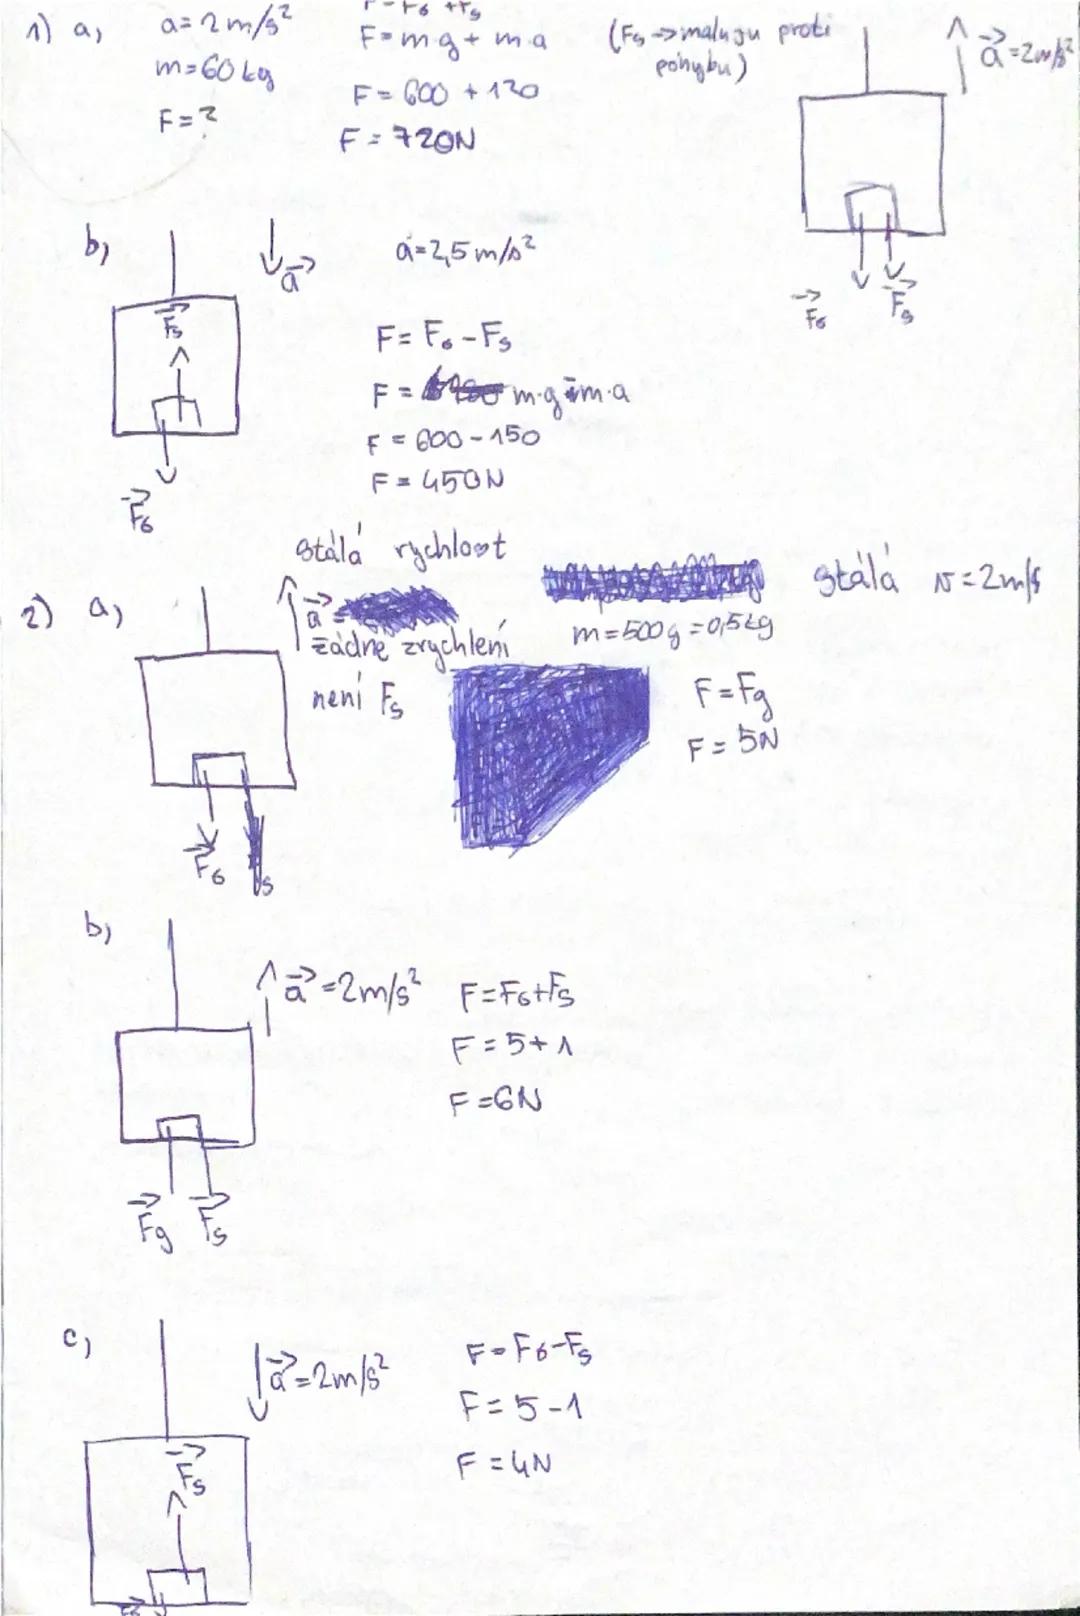 1) a,
a = 2 m/s²
m = 60 kg
F = ?
F = F_G + F_s
F = m·g + m·a
F = 600 + 120
F = 720N
(F_s -> maluju proti
pohybu)
a⃗ = 2m/s²
F⃗_G F⃗_s
b,
a⃗
a = 2,5 m/s²
F⃗_s
F⃗_G
F = F_G - F_s
F = m·g - m·a
F = 600 - 150
F = 450N
2) a,
stálá rychlost
a⃗ =
žádné zrychlení
není F_s
stálá v = 2m/s
m = 500g = 0,5kg
F = F_g
F = 5N
F⃗_G
b,
a⃗ = 2m/s²
F = F_G + F_s
F = 5 + 1
F = 6N
F⃗_g F⃗_s
c,
a⃗ = 2m/s²
F = F_G - F_s
F = 5 - 1
F = 4N
F⃗_s
F⃗_G